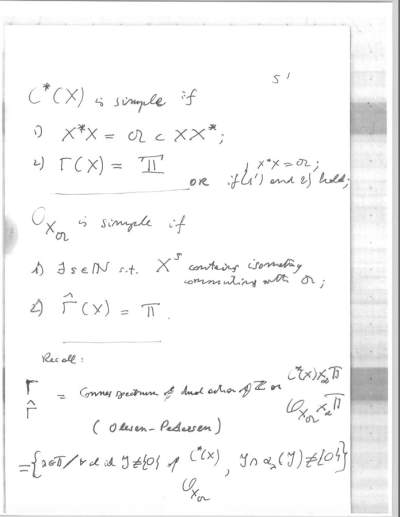 5'
C*(X) is simple if
1) X*X = 𝔄 ⊂ XX*;
2) Γ(X) = 𝕋
1') X*X = 𝔄;
OR if (1') and 2) hold;
O_{X_𝔄} is simple if
1) ∃ s ∈ ℕ s.t. X^s contains isometry
commuting with 𝔄;
2) Γ̂(X) = 𝕋.
Recall:
Γ
Γ̂ = Connes spectrum of dual action of ℤ on C*(X)⋊_α 𝕋
O_{X_𝔄}⋊_α 𝕋
(Olesen-Pedersen)
= {λ∈𝕋 / ∀ id J≠{0} of C*(X), J∩α_λ(J)≠{0}}
O_{X_𝔄}